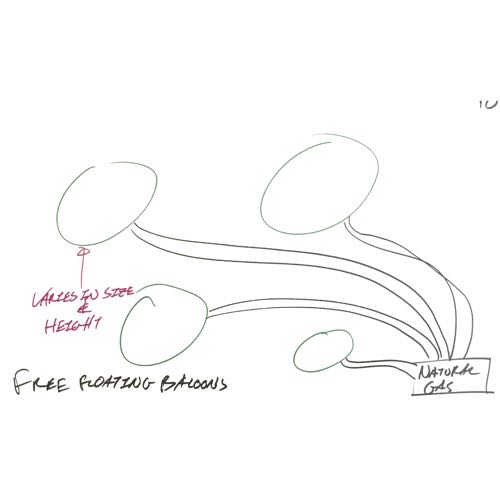 VARIES IN SIZE
&
HEIGHT
FREE FLOATING BALOONS
NATURAL
GAS